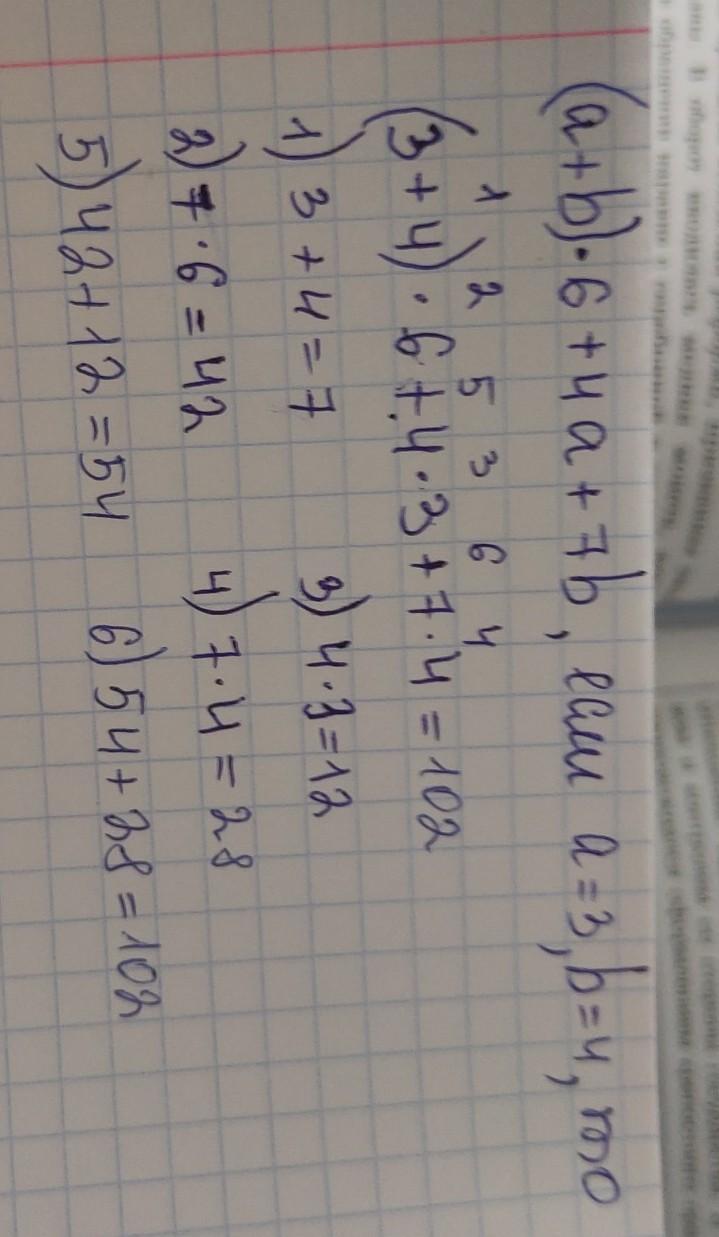 (a+b)·6+4a+7b, если a=3, b=4, то
1 2 5 3 6 4
(3+4)·6+4·3+7·4=102
1) 3+4=7
3) 4·3=12
2) 7·6=42
4) 7·4=28
5) 42+12=54
6) 54+28=102